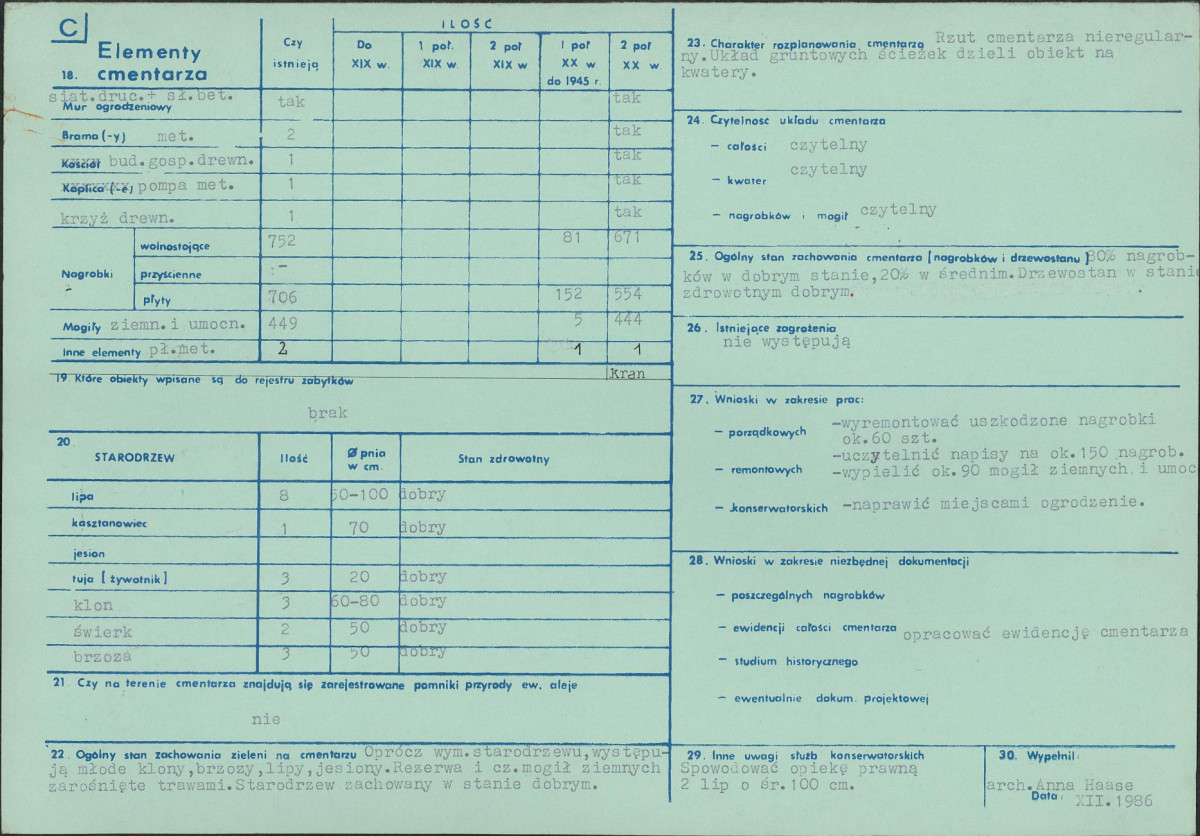 C
Elementy
18. cmentarza
Czy istnieją
ILOŚĆ
Do XIX w.
1 poł. XIX w.
2 poł XIX w
1 poł XX w do 1945 r.
2 poł XX w
siat.druc.+ sł.bet.
Mur ogrodzeniowy tak tak
Brama (-y) met. 2 tak
Kościół bud.gosp.drewn. 1 tak
Kaplica (-e) pompa met. 1 tak
krzyż drewn. 1 tak
Nagrobki
wolnostojące 752 81 671
przyścienne :-
płyty 706 152 554
Mogiły ziemn.i umocn. 449 5 444
Inne elementy pł.met. 2 1 1
kran
19 Które obiekty wpisane są do rejestru zabytków
brak
20
STARODRZEW Ilość Ø pnia w cm. Stan zdrowotny
lipa 8 50-100 dobry
kasztanowiec 1 70 dobry
jesion
tuja [żywotnik] 3 20 dobry
klon 3 60-80 dobry
świerk 2 50 dobry
brzoza 3 50 dobry
21 Czy na terenie cmentarza znajdują się zarejestrowane pomniki przyrody ew. aleje
nie
22. Ogólny stan zachowania zieleni na cmentarzu Oprócz wym.starodrzewu,występu-
ją młode klony,brzozy,lipy,jesiony.Rezerwa i cz.mogił ziemnych
zarośnięte trawami.Starodrzew zachowany w stanie dobrym.
23. Charakter rozplanowania cmentarza Rzut cmentarza nieregular-
ny.Układ gruntowych ścieżek dzieli obiekt na
kwatery.
24. Czytelność układu cmentarza
– całości czytelny
– kwater czytelny
– nagrobków i mogił czytelny
25. Ogólny stan zachowania cmentarza [nagrobków i drzewostanu] 80% nagrob-
ków w dobrym stanie,20% w średnim.Drzewostan w stanie
zdrowotnym dobrym.
26. Istniejące zagrożenia
nie występują
27. Wnioski w zakresie prac:
– porządkowych -wyremontować uszkodzone nagrobki
ok.60 szt.
-uczytelnić napisy na ok.150 nagrob.
– remontowych -wypielić ok.90 mogił ziemnych i umoc
– konserwatorskich -naprawić miejscami ogrodzenie.
28. Wnioski w zakresie niezbędnej dokumentacji
– poszczególnych nagrobków
– ewidencji całości cmentarza opracować ewidencję cmentarza
– studium historycznego
– ewentualnie dokum. projektowej
29. Inne uwagi służb konserwatorskich
Spowodować opiekę prawną
2 lip o śr.100 cm.
30. Wypełnił:
arch.Anna Haase
Data: XII.1986